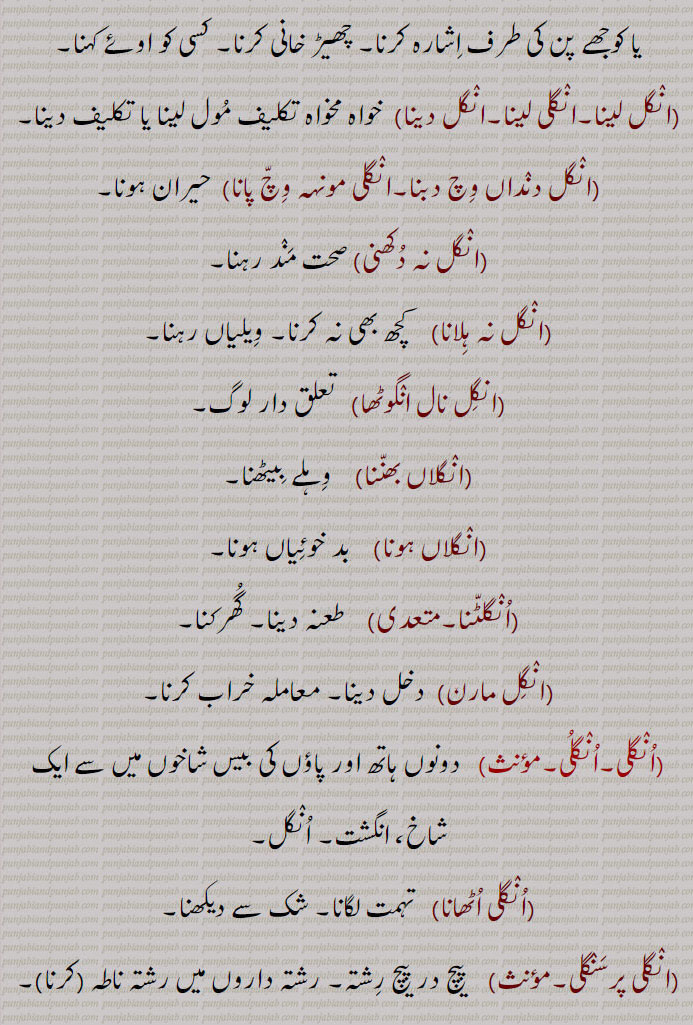 یا کوجھے پن کی طرف اِشارہ کرنا۔ چھیڑ خانی کرنا۔ کسی کو اوئے کہنا۔
(انْگل لینا۔انْگلی لینا۔انْگل دینا) خواہ مخواہ تکلیف مُول لینا یا تکلیف دینا۔
(انْگل دنْداں وِچ دبنا۔انْگلی مونہہ وِچّ پانا) حیران ہونا۔
(انْگل نہ دُکھنی) صحت مَنْد رہنا۔
(انْگل نہ ہِلانا) کچھ بھی نہ کرنا۔ وِیلیاں رہنا۔
(انگلِ نال انْگوٹھا) تعلق دار لوگ۔
(انْگلاں بھنّنا) وِہلے بیٹھنا۔
(انْگلاں ہونا) بد خوئِیاں ہونا۔
(اُنْگلٹّنا۔متعدی) طعنہ دینا۔ گُھرکنا۔
(انْگلِ مارن) دخل دینا۔ معاملہ خراب کرنا۔
(اُنْگلی۔اُنْگلُی۔مؤنث) دونوں ہاتھ اور پاؤں کی بیس شاخوں میں سے ایک
شاخ، انگشت۔ اُنْگل۔
(اُنْگلی اُٹھانا) تہمت لگانا۔ شک سے دیکھنا۔
(انْگلی پر سَنْگلی۔مؤنث) پیچ در پیچ رِشتہ۔ رشتہ داروں میں رشتہ ناطہ (کرنا)۔